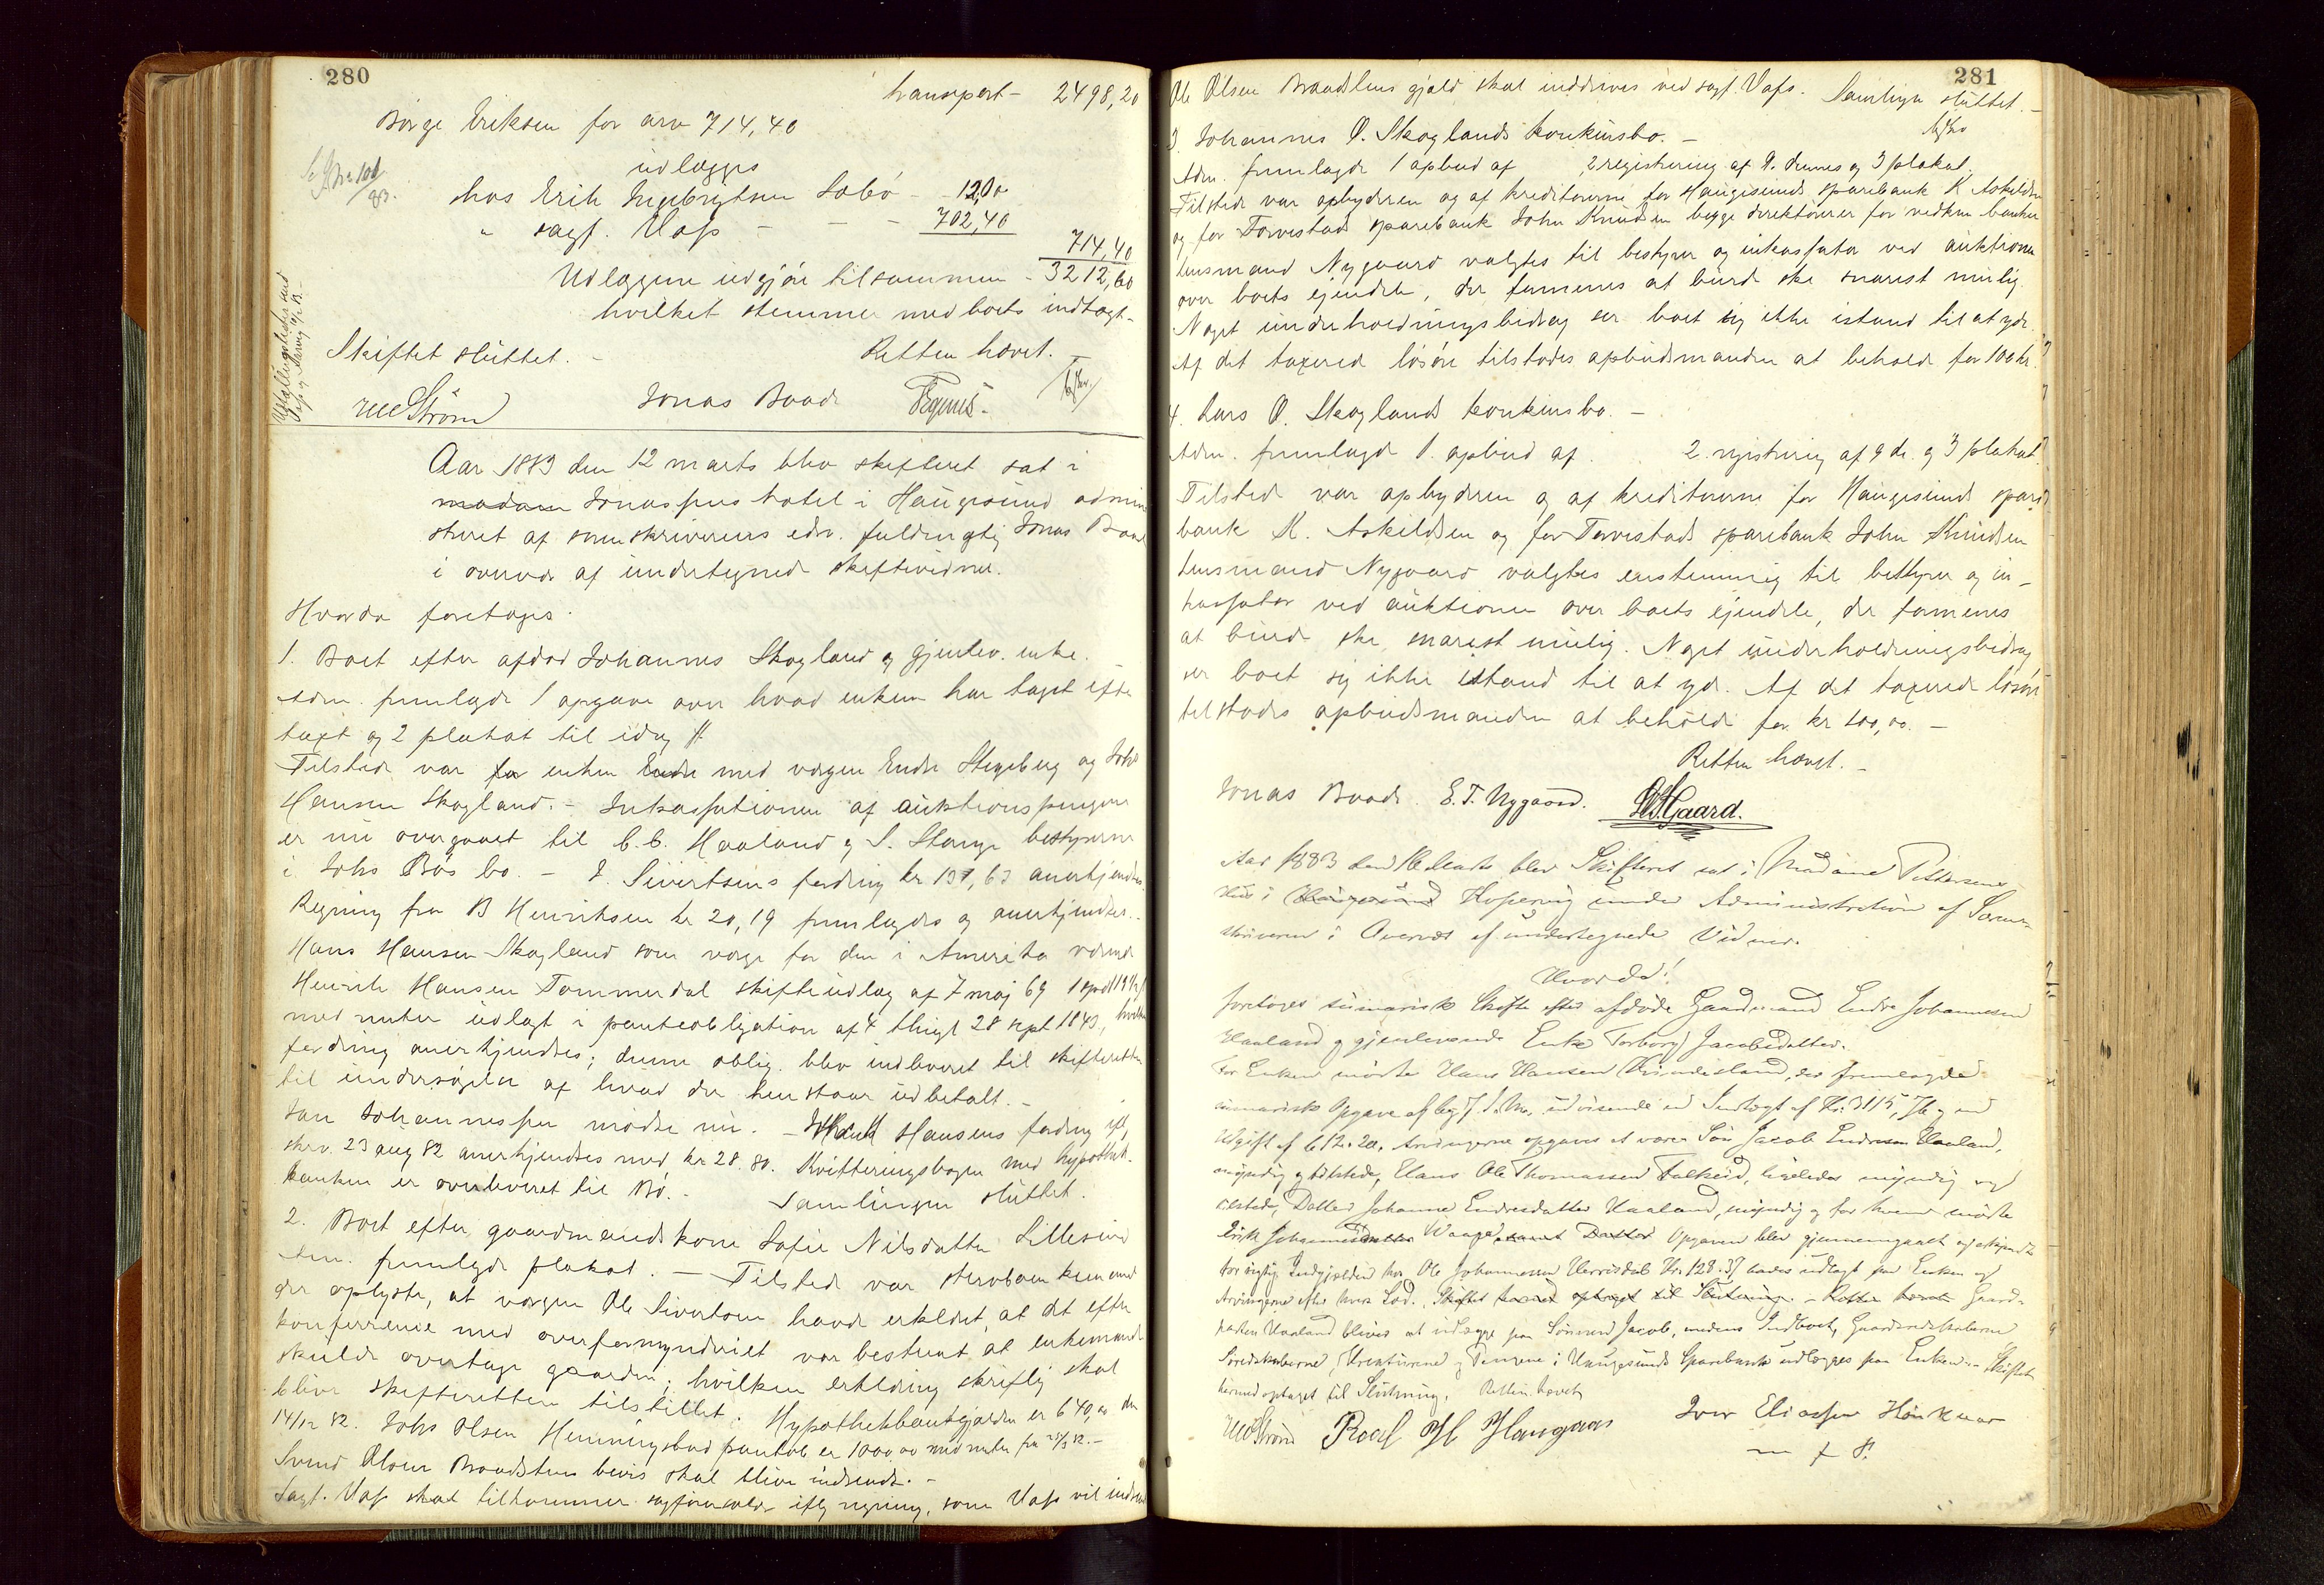 280
transport – 2498,20
Børge Eriksen for arv 714,40
udlægges
hos Erik Ingebrigtsen Sæbø – 12,00
" sagf. Vafs – – – 702,40
714,40
Udlæggene udgjør tilsammen – 3212,60
hvilket stemmer med boets indtægt –
Skiftet sluttet. – Retten hævet. –
Strøm Jonas Baade
Aar 1883 den 12 marts blev skifteret sat i
madam Jonassens hotel i Haugesund admini
streret af sorenskriverens edsv. fuldmægtig Jonas Baade
i overvær af undertegnede skiftevidner.
Hvorda foretoges.
1. Boet efter afdød Johannes Skogland og gjenlev. enke.
Adm. fremlagde 1 opgave over hvad enken har taget efter
taxt og 2 plakat til idag
Tilstede var for enken Endre med værgen Endre Stegeberg og Johs
Hansen Skogland. – Inkassationen af auktionspengene
er nu overgaaet til C. C. Haaland og S. Stange bestyrerne
i Johs Bøs bo. – Sivertsens fordring kr 137,63 anerkjendtes.
Regning fra B Henriksen kr 20,19 fremlagdes og anerkjendtes. –
Hans Hansen Skogland som værge for den i Amerika værende
Henrik Hansen Tommerdal skifteudlæg af 7 maj 69 1 spd
med renter udlagt i panteobligation af 4 thingl 28 sept 1843, hvilken
fordring anerkjendtes; denne oblig. blev indleveret til skifteretten
til undersøgelse af hvad der henstaar ubetalt. –
Jan Johannessen mødte nu. – Hansens fordring ifl.
skr. 23 aug 82 anerkjendtes med kr 28.80. Kvitteringsbogen med hypothek-
banken er overleveret til Bø. – Samlingen sluttet.
2. Boet efter gaardmandskone Sofie Nilsdatter Lillesund
Adm. fremlagde plakat. – Tilstede var sterboenkemand
der oplyste, at værgen Ole Sivertsen havde erklæret, at det efter
konferrence med overformynderiet var bestemt at enkemand
skulde overtage gaarden; hvilken erklæring skriftlig skal
blive skifteretten tilstillet. Hypothekbankgjælden er 640,00 den
14/12 82. Johs Olsen Henningsbud pantob. er 1000,00 med renter fra
Svend Olsen Braadstens bevis skal blive indsendt. –
Sagf. Vafs skal tilkommer sagførersalær ifølg regning, som Vafs vil indsende
281
Ole Olsen Braadstens gjæld skal inddrives ved sagf. Vafs. Samlingen sluttet. –
3. Johannes O. Skoglands konkursbo. –
Adm. fremlagde 1 opbud af 2 registrering af 9. dennes og 3 plakat.
Tilstede var opbyderen og af kreditorerne for Haugesunds sparebank K Askildsen
og for Torvestads sparebank John Knudsen begge direktører for vedkm banker
Lensmand Nygaard valgtes til bestyrer og inkassator ved auktionen
over boets ejendele, der formenes at burde ske snarest mulig
Noget underholdningsbidrag ser boet sig ikke istand til at yde.
Af det taxerede løsøre tilstodes opbudsmanden at beholde for 100 kr.
4. Lars O. Skoglands konkursbo. –
Adm. fremlagde 1. opbud af 2. registrering af 9 ds. og 3 plakat.
Tilstede var opbyderen og af kreditorerne for Haugesunds spare
bank K. Askildsen og for Torvestads sparebank John Knudsen
Lensmand Nygaard valgtes enstemmig til bestyrer og in-
kassator ved auktionen over boets ejendele, der formenes
at burde ske snarest mulig. Noget underholdningsbidrag
ser boet sig ikke istand til at yde. Af det taxerede løsøre
tilstodes opbudsmanden at beholde for kr 100,00. –
Retten hævet. –
Jonas Baade. E. T. Nygaard. Gaard.
Aar 1883 den Marts blev Skifteret sat i Madame Pettersens
Hus i Haugesund Kopervig under Administration af Soren-
skriveren i Overvær af undertegnede Vidner.
Hvorda!
foretoges sumarisk Skifte efter afdøde Gaardmand Endre Johannesen
Haaland og gjenlevende Enke Torborg Jacobsdatter.
For Enken mødte Hans Hansen, der fremlagde
sumarisk Opgave af udvisende en Indtægt af Kr. 3115, og en
Udgift af 612.20. Arvingerne opgaves at være Søn Jacob Endresen Haaland,
myndig og tilstede, Hans Ole Thomassen Falkeid, ligeledes myndig og
tilstede, Datter Johanne Endresdatter Haaland, myndig og for hvem mødte
Erik Johannesen Waage, samt Datter Opgaven blev gjennemgaaet og erkjendt
for rigtig. Indgjælden hos Ole Johannessen Kr. 128.37 loves udlagt paa Enken og
Arvingerne efter hvers Lod. Skiftet hermed optaget til Slutning. – Retten hævet Gaard-
parten Haaland bliver at udlægge paa Sønnen Jacob, medens Indboet, Gaardsredskaberne
Søredskaberne, Kreaturene og Pengene i Haugesunds Sparebank udlægges paa Enken. – Skiftet
hermed optaget til Slutning. Retten hævet
Strøm Roald H Haugaas Iver Eliassen